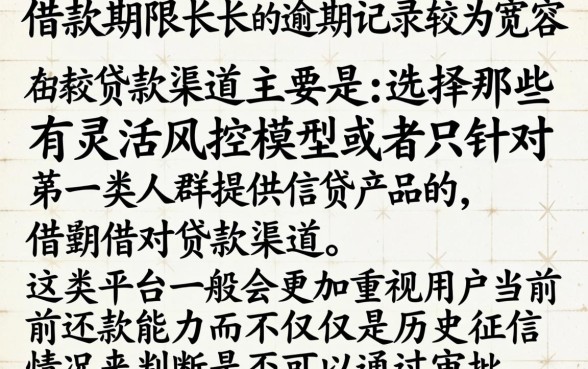 借款期限长长的逾期记录较为宽容
在较贷款渠道主要是:选择那些
有灵活风控模型或者只针对
第一类人群提供信贷产品的,
借借对贷款渠道。
这类平台一般会更加重视用户当前
前还款能力而不仅仅是历史征信
情况来判断是否可以通过审批